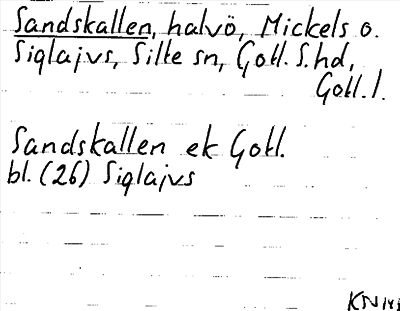 Sandskallen, halvö, Mickels o.
Siglajvs, Silte sn, Gotl. S. hd,
Gotl. l.
Sandskallen ek Gotl.
bl. (26) Siglajvs